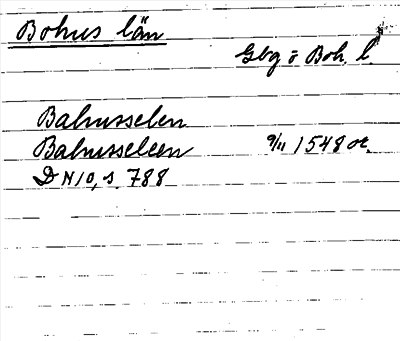 Bohus län
Gbg o Boh. l.
Bahusselen
Bahusseleen 9/11 1548 or.
DN 10, s. 788